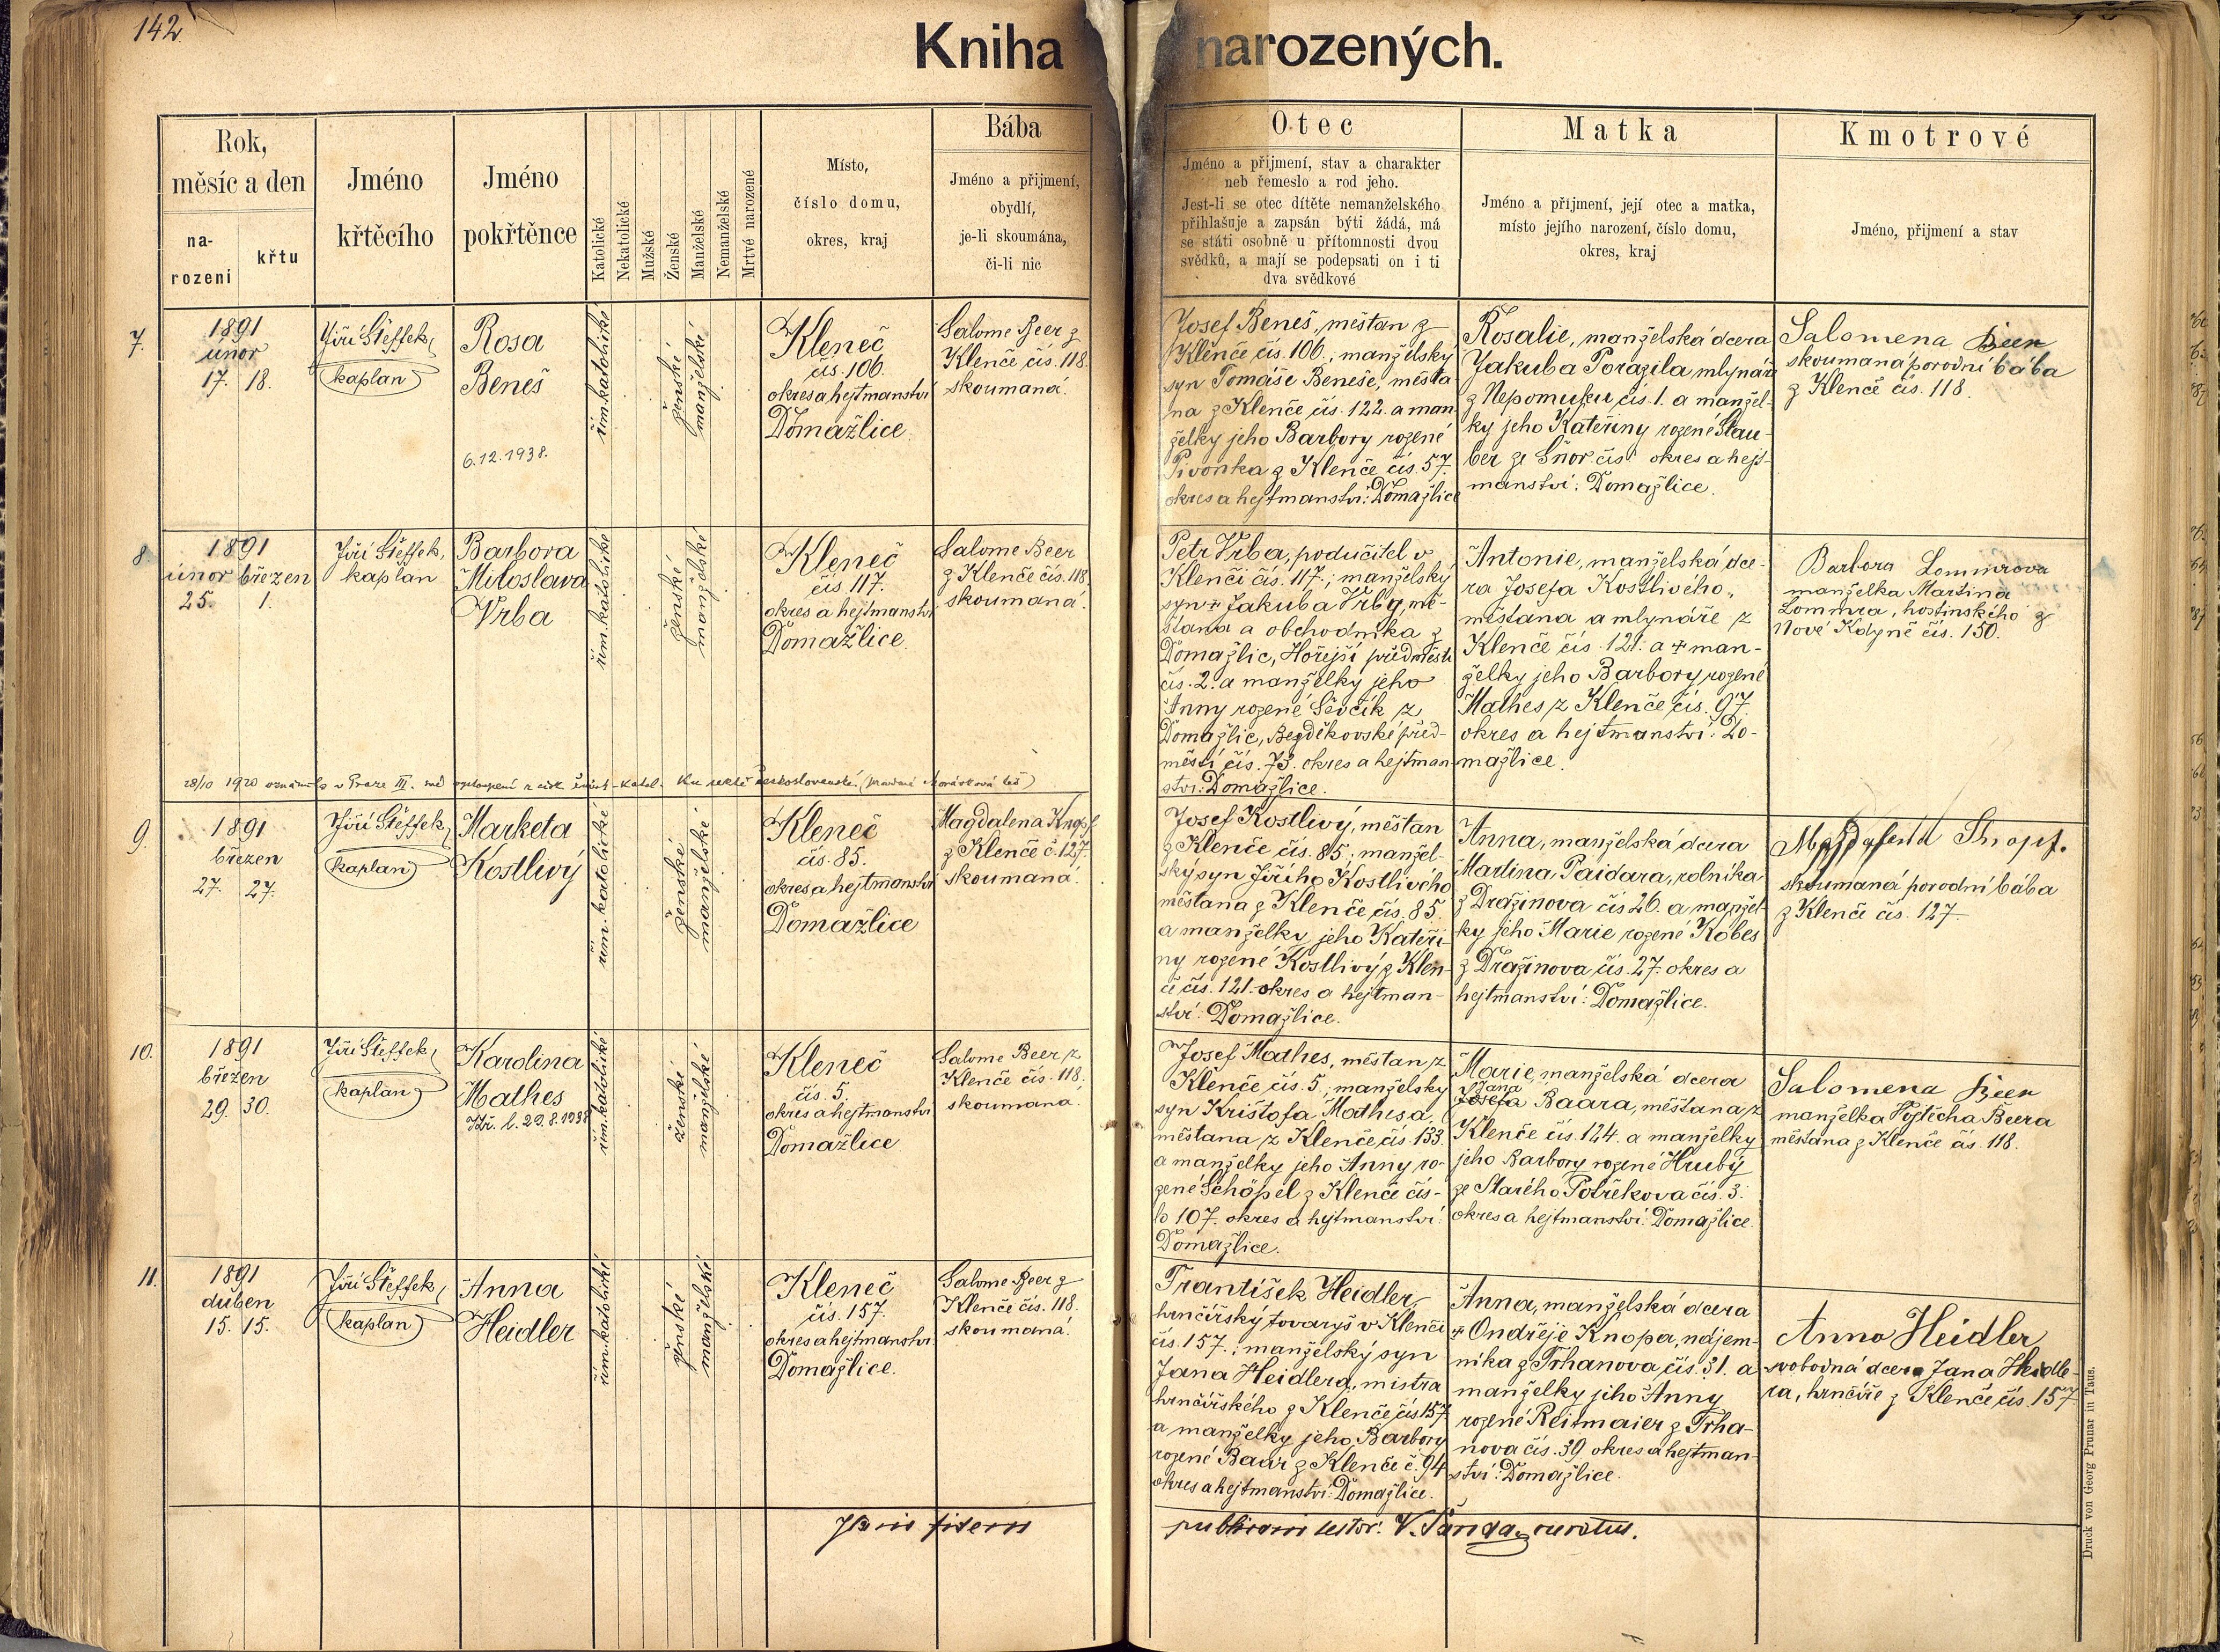 142
Kniha narozených.
Rok,
měsíc a den
na-
rozeni
křtu
Jméno
křtěcího
Jméno
pokřtěnce
Katolické
Nekatolické
Mužské
Ženské
Manželské
Nemanželské
Mrtvě narozené
Místo,
číslo domu,
okres, kraj
Bába
Jméno a přijmení,
obydlí,
je-li skoumána,
či-li nic
Otec
Jméno a přijmení, stav a charakter
neb řemeslo a rod jeho.
Jest-li se otec dítěte nemanželského
přihlašuje a zapsán býti žádá, má
se státi osobně u přítomnosti dvou
svědků, a mají se podepsati on i ti
dva svědkové
Matka
Jméno a přijmení, její otec a matka,
místo jejího narození, číslo domu,
okres, kraj
Kmotrové
Jméno, přijmení a stav
7.
1891
únor
17. 18.
Jiří Šteffek,
kaplan
Rosa
Beneš
6.12.1938.
řím. katolické
ženské
manželské
Kleneč
čís. 106.
okres a hejtmanství
Domažlice.
Salome Beer z
Klenče čís. 118.
skoumaná.
Josef Beneš, měštan z
Klenče čís. 106., manželský
syn Tomáše Beneše, měšta
na z Klenče čís. 122. a man
želky jeho Barbory rozené
Pivonka z Klenče čís. 57.
okres a hejtmanství: Domažlice
Rosalie, manželská dcera
Jakuba Porazila mlynáře
z Nepomuku čís. 1. a manžel-
ky jeho Kateřiny rozené Stau-
ber ze Šnor čís. okres a hejt-
manství: Domažlice.
Salomena Beer
skoumaná porodní bába
z Klenče čís. 118.
8.
1891
únor březen
25. 1.
Jiří Šteffek,
kaplan
Barbora
Miloslava
Vrba
řím. katolické
ženské
manželské
Kleneč
čís. 117.
okres a hejtmanství
Domažlice.
Salome Beer
z Klenče čís. 118
skoumaná.
Petr Vrba, podučitel v
Klenči čís. 117.; manželský
syn + Jakuba Vrby, mě-
šťana a obchodníka z
Domažlic, Hořejší předměstí
čís. 2. a manželky jeho
Anny rozené Ševčík z
Domažlic, Bezděkovské před-
městí čís. 73. okres a hejtman
ství: Domažlice.
Antonie, manželská dce-
ra Josefa Kostlivého,
měšťana a mlynáře z
Klenče čís. 121. a + man-
želky jeho Barbory rozené
Mathes z Klenče čís. 97.
okres a hejtmanství: Do-
mažlice.
Barbora Lommrova
manželka Martina
Lommra, hostinského z
Nové Kdyně čís. 150.
28/10 1920 oznámila v Praze III. své vystoupení z círk. římsk.-katol. Ku sektě československé.
9.
1891
březen
27. 27.
Jiří Šteffek,
kaplan
Marketa
Kostlivý
řím. katolické
ženské
manželské
Kleneč
čís. 85.
okres a hejtmanství
Domažlice
Magdalena Knopf
z Klenče č. 127.
skoumaná.
Josef Kostlivý, měštan
z Klenče čís. 85.; manžel-
ský syn Jiřího Kostlivého
měšťana z Klenče čís. 85.
a manželky jeho Kateři-
ny rozené Kostlivý z Klen-
če čís. 121. okres a hejtman-
ství: Domažlice.
Anna, manželská dcera
Martina Paidara, rolníka
z Dražinova čís 26. a manžel-
ky jeho Marie rozené Kobes
z Dražinova čís. 27. okres a
hejtmanství: Domažlice.
Magdalena Knopf.
skoumaná porodní bába
z Klenče čís. 127.
10.
1891
březen
29. 30.
Jiří Šteffek,
kaplan
Karolina
Mathes
Kř. l. 29.8.1938
řím. katolické
ženské
manželské
Kleneč
čís. 5.
okres a hejtmanství
Domažlice
Salome Beer z
Klenče čís. 118,
skoumaná.
Josef Mathes, měštan z
Klenče čís. 5.; manželský
syn Krištofa Mathesa,
měšťana z Klenče čís. 133.
a manželky jeho Anny ro-
zené Schöpel z Klenče čís-
lo 107. okres a hejtmanství:
Domažlice.
Marie, manželská dcera
Jana
Josefa Baara, měšťana z
Klenče čís. 124. a manželky
jeho Barbory rozené Hrubý
ze Starého Postřekova čís. 3.
okres a hejtmanství: Domažlice.
Salomena Beer
manželka Vojtěcha Beera
měšťana z Klenče čís. 118.
11.
1891
duben
15. 15.
Jiří Šteffek,
kaplan
Anna
Heidler
řím. katolické
ženské
manželské
Kleneč
čís. 157.
okres a hejtmanství
Domažlice.
Salome Beer z
Klenče čís. 118.
skoumaná.
František Heidler,
hrnčířský tovaryš v Klenči
čís. 157.; manželský syn
Jana Heidlera, mistra
hrnčířského z Klenče čís. 157
a manželky jeho Barbory
rozené Baar z Klenče č. 94
okres a hejtmanství: Domažlice.
Anna, manželská dcera
+ Ondřeje Knopa, nájem-
níka z Trhanova čís. 31. a
manželky jeho Anny
rozené Reitmaier z Trha-
nova čís. 39 okres a hejtman-
ství: Domažlice.
Anna Heidler
svobodná dcera Jana Heidle-
ra, hrnčíře z Klenče čís. 157
In fidem publicam testor: V. Panda, curatus.
Druck von Georg Prunar in Taus.